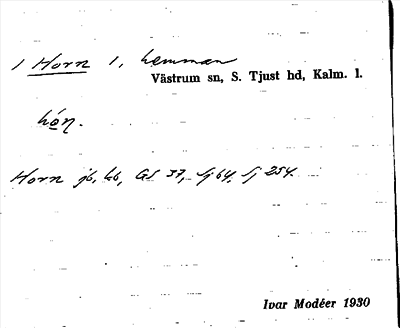 1 Horn 1, hemman
Västrum sn, S. Tjust hd, Kalm. l.
hón.
Horn jb, kb, GS 37, Sj 64, Sj 254.
Ivar Modéer 1930